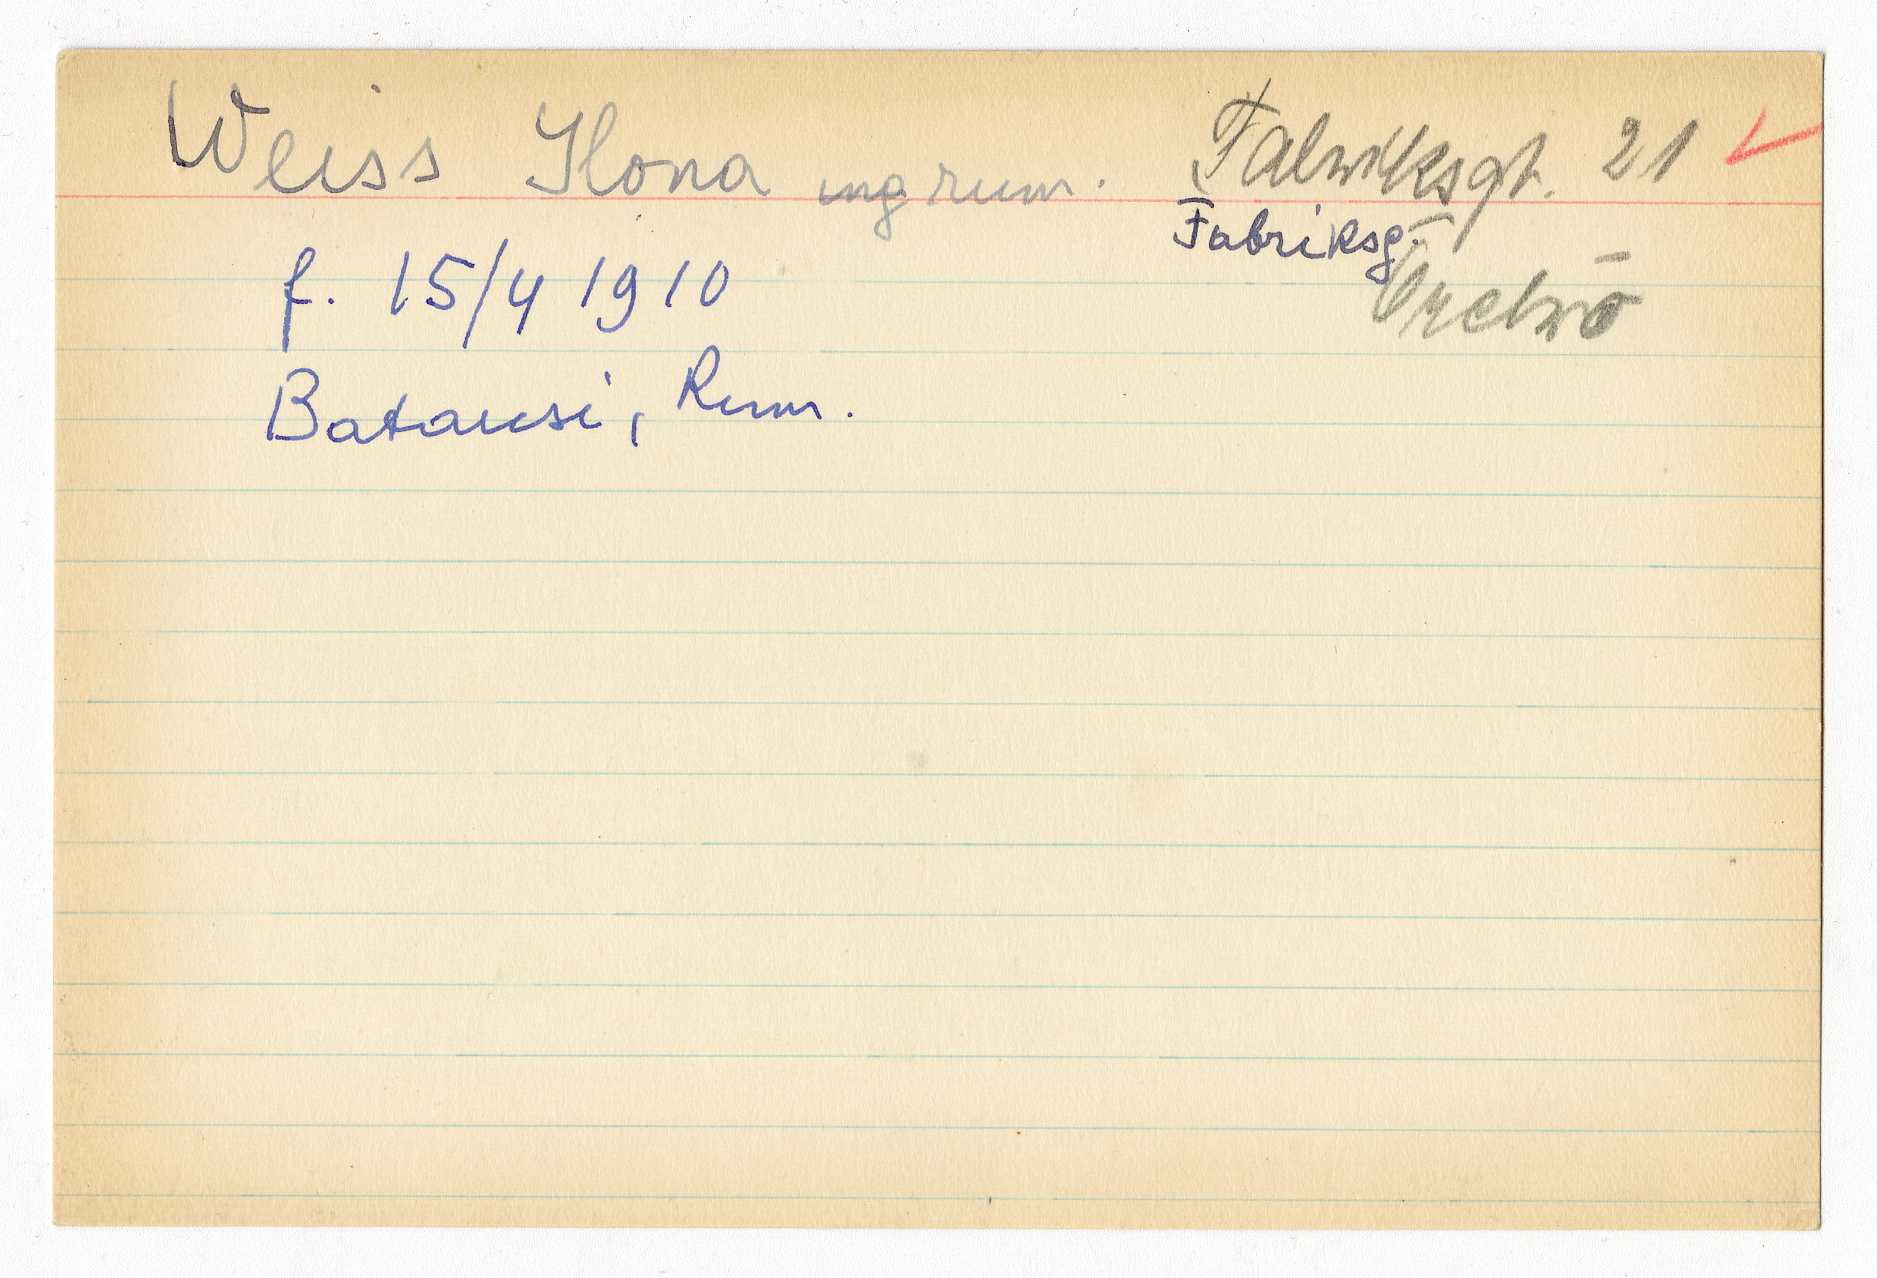 Weiss Ilona ung rum. Fabriksgt. 21
Fabriksg.
Örebro
f. 15/4 1910
Batausi, Rum.